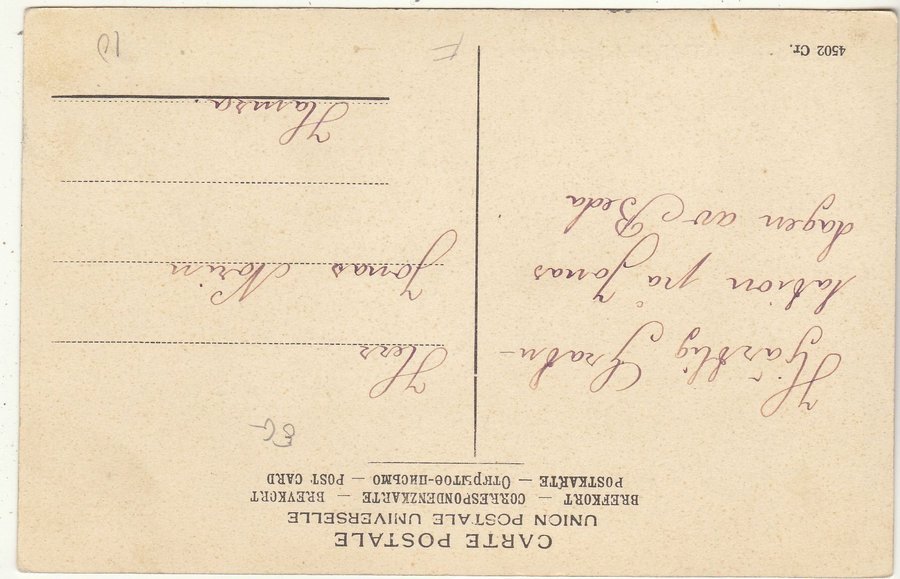 CARTE POSTALE
UNION POSTALE UNIVERSELLE
BREFKORT — CORRESPONDENZKARTE — BREVKORT
POSTKARTE — Открытое-письмо — POST CARD
Hjärtlig Gratu-
lation på Jonas
dagen av Beda
Herr
Jonas Norin
Hamra.
4502 Cr.
10
F